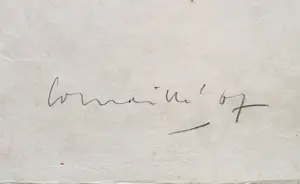 Corneille '07